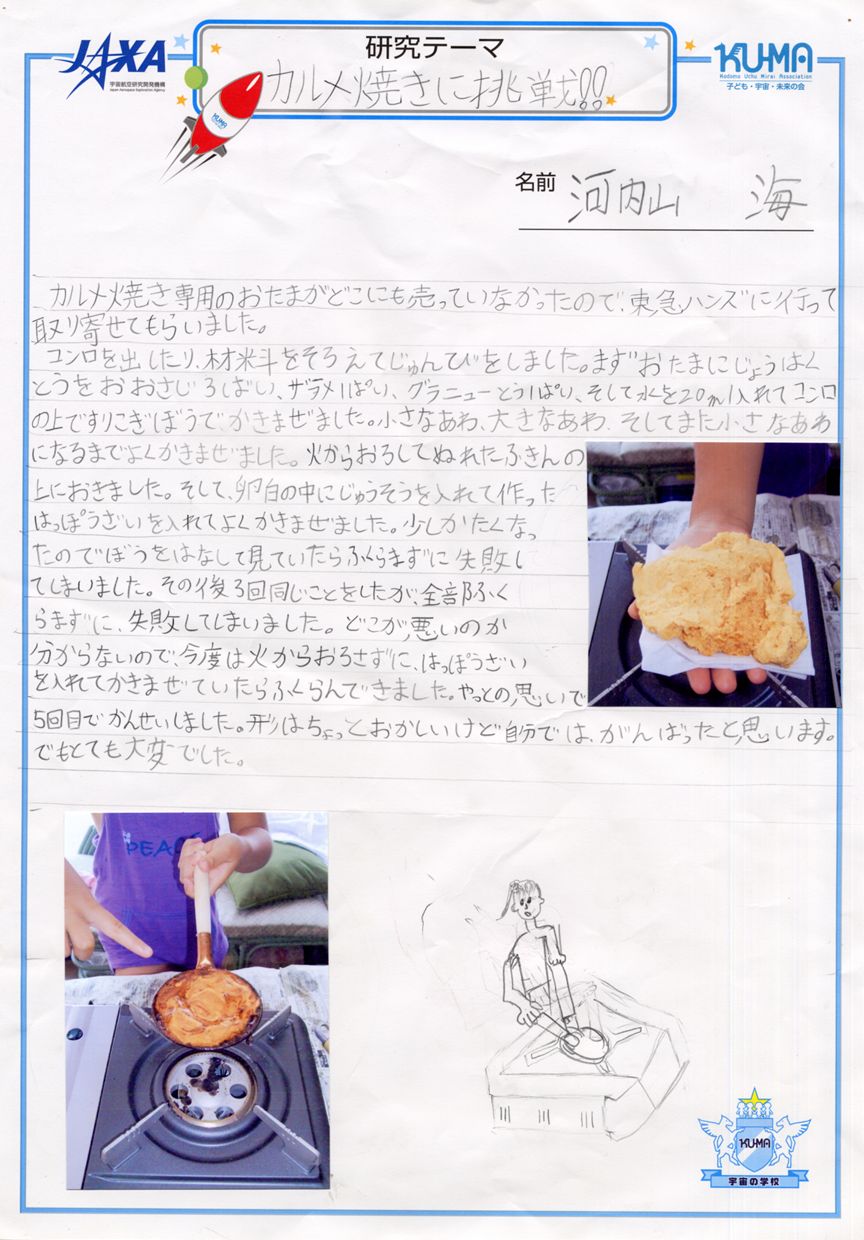 JAXA
宇宙航空研究開発機構
Japan Aerospace Exploration Agency
研究テーマ
カルメ焼きに挑戦!!
KU-MA
Kodomo Uchu Mirai Association
子ども・宇宙・未来の会
KU-MA
名前 河内山 海
カルメ焼き専用のおたまがどこにも売っていなかったので、東急ハンズに行って
取り寄せてもらいました。
コンロを出したり、材料をそろえてじゅんびをしました。まずおたまにじょうはく
とうをおおさじ3ばい、ザラメ1ぱい、グラニューとう1ぱい、そして水を20ml入れてコンロ
の上ですりこぎぼうでかきまぜました。小さなあわ、大きなあわ、そしてまた小さなあわ
になるまでよくかきまぜました。火からおろしてぬれたふきんの
上におきました。そして、卵白の中にじゅうそうを入れて作った
はっぽうざいを入れてよくかきまぜました。少しかたくなっ
たのでぼうをはなして見ていたらふくらまずに失敗し
てしまいました。その後3回同じことをしたが、全部ふく
らまずに、失敗してしまいました。どこが悪いのか
分からないので、今度は火からおろさずに、はっぽうざい
を入れてかきまぜていたらふくらんできました。やっとの思いで
5回目でかんせいしました。形はちょっとおかしいけど自分では、がんばったと思います。
でもとても大変でした。
PEACE
KU-MA
宇宙の学校